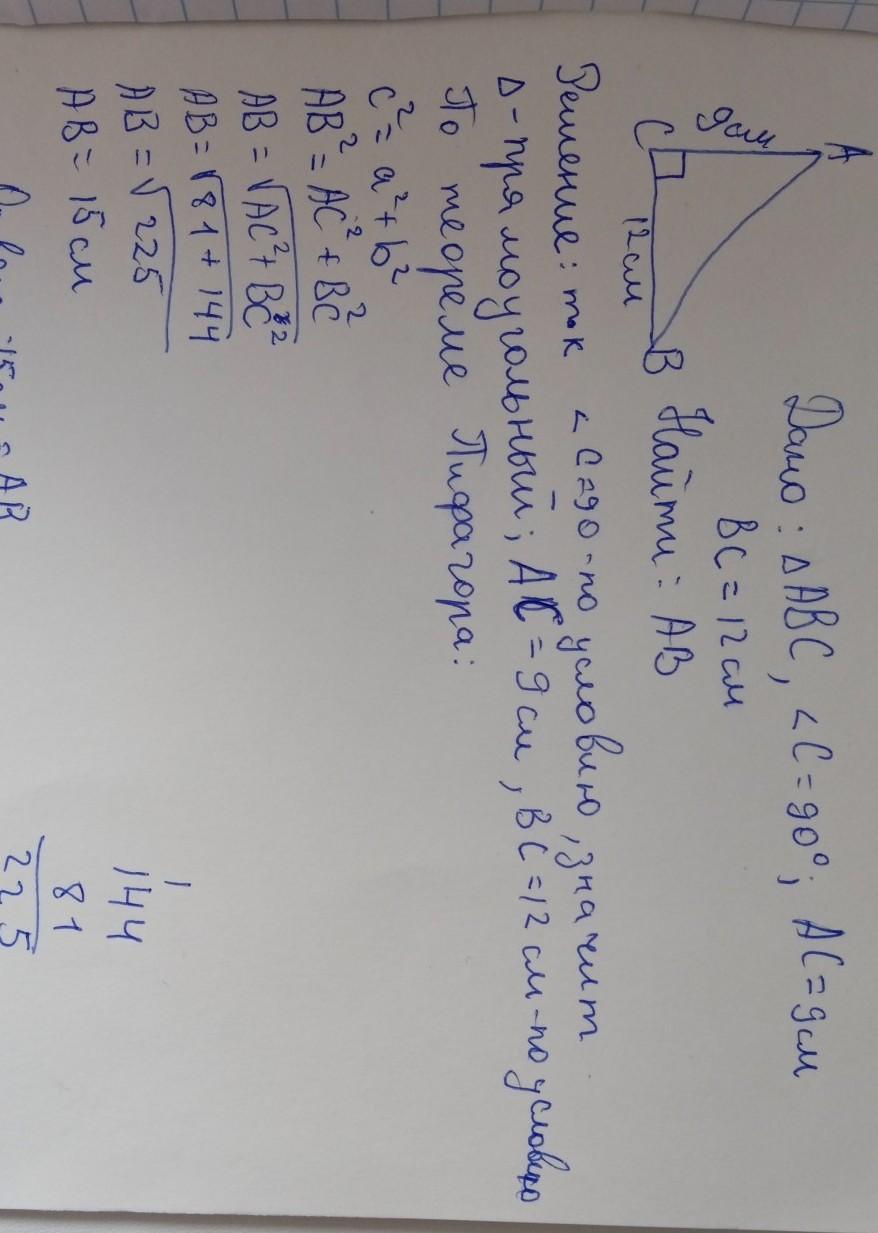 A
9см
C
12см
B
Дано: ΔABC, <C=90°; AC=9см
BC=12см
Найти: AB
Решение: т.к <C=90-по условию, значит
Δ-прямоугольный; AC=9см, BC=12см-по условию
По теореме Пифагора:
c²=a²+b²
AB²=AC²+BC²
AB=√AC²+BC²
AB=√81+144
AB=√225
AB=15см
1
144
81
225